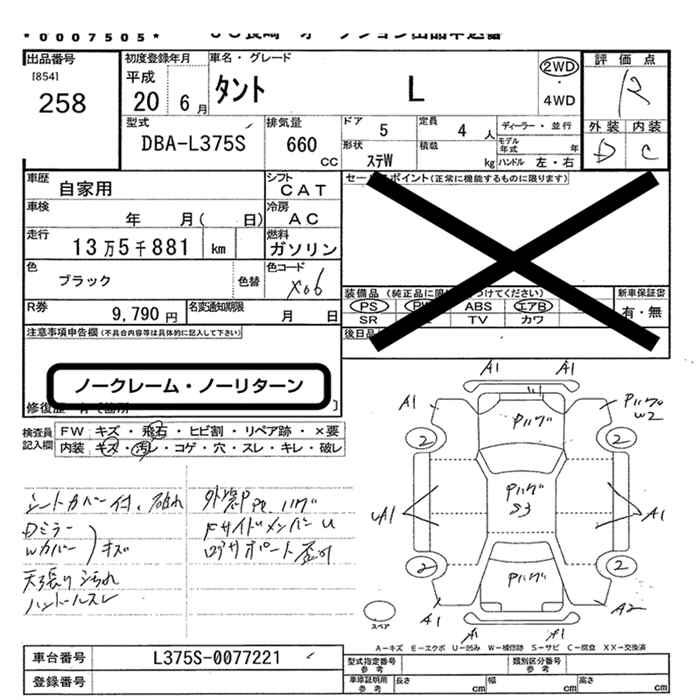 *0007505*
出品番号
[854]
258
初度登録年月
平成
20 6 月
車名・グレード
タント L
2WD
・
4WD
評価点
R
外装 内装
D C
型式
DBA-L375S
排気量
660
cc
ドア
5
定員
4 人
形状
ステW
積載
kg
ディーラー・並行
モデル年式 年
ハンドル 左・右
車歴
自家用
シフト
CAT
車検
年 月( 日)
冷房
AC
走行
13万5千881 km
燃料
ガソリン
色
ブラック
色替
色コード
X06
R券
9,790 円
名変通知期限
月 日
セールスポイント(正常に機能するものに限ります)
装備品
PS ABS エアB
SR TV カワ
新車保証書
有・無
後日品
注意事項申告欄(不具合内容等は具体的に記入して下さい)
ノークレーム・ノーリターン
検査員
記入欄
FW キズ・飛石・ヒビ割・リペア跡・×要
内装 キズ・汚レ・コゲ・穴・スレ・キレ・破レ
シートカバー付、破れ
Dミラー
Wカバー
キズ
天張り汚れ
ハンドルスレ
外装P ハゲ
FサイドメンバーU
ロアサポート歪み
A1 A1
A1
Pハゲ
W2
Pハゲ
2 2
A1
Pハゲ
S3
A1
2 2
Pハゲ
A1
A2
A1 A1
スペア
A-キズ E-エクボ U-凹み W-補修跡 S-サビ C-腐食 XX-交換済
車台番号
L375S-0077221
登録番号
型式指定番号
参考
類別区分番号
参考
車庫証明用
参考
長さ cm
幅 cm
高さ cm